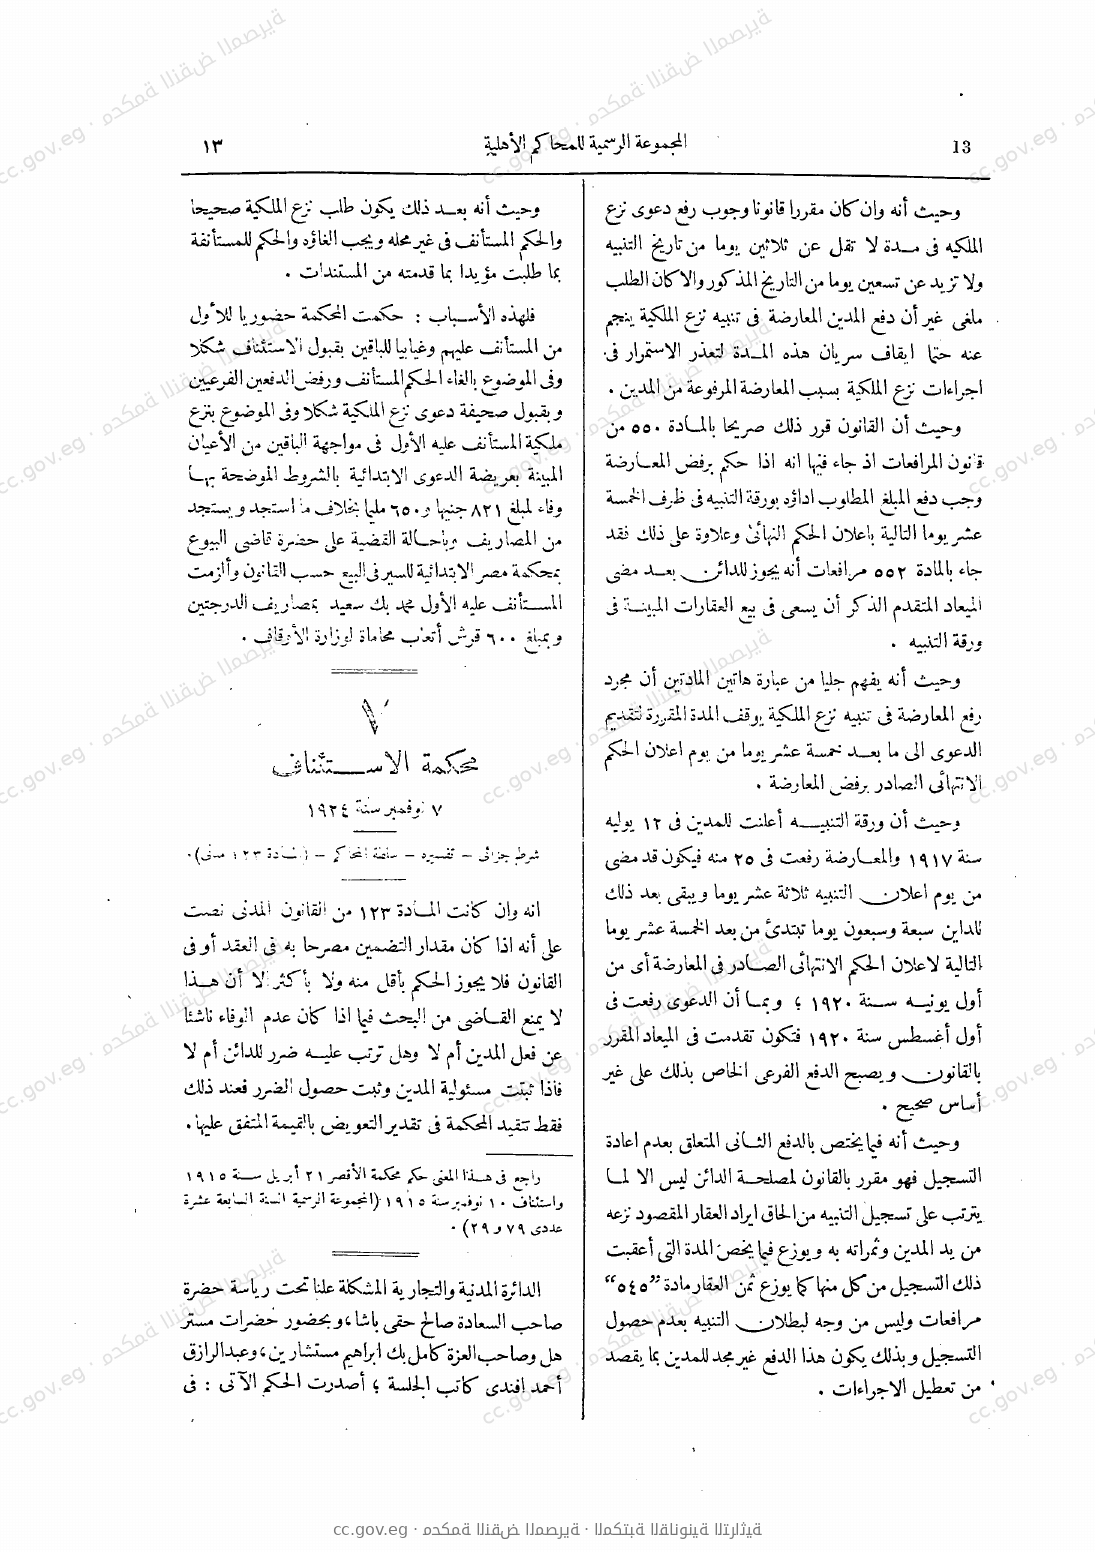 13
المجموعة الرسمية للمحاكم الأهلية
١٣
وحيث أنه وان كان مقررا قانونا وجوب رفع دعوى نزع
الملكيه فى مدة لا تقل عن ثلاثين يوما من تاريخ التنبيه
ولا تزيد عن تسعين يوما من التاريخ المذكور والا كان الطلب
ملغى غير أن دفع المدين المعارضة فى تنبيه نزع الملكية ينجم
عنه حتما ايقاف سريان هذه المدة لتعذر الاستمرار فى
اجراءات نزع الملكية بسبب المعارضة المرفوعة من المدين .
وحيث أن القانون قرر ذلك صريحا بالمادة ٥٥٠ من
قانون المرافعات اذ جاء فيها انه اذا حكم برفض المعارضة
وجب دفع المبلغ المطلوب اداؤه بورقة التنبيه فى ظرف الخمسة
عشر يوما التالية باعلان الحكم النهائى وعلاوة على ذلك فقد
جاء بالمادة ٥٥٢ مرافعات أنه يجوز للدائن بعد مضى
الميعاد المتقدم الذكر أن يسعى فى بيع العقارات المبينة فى
ورقة التنبيه .
وحيث أنه يفهم جليا من عبارة هاتين المادتين أن مجرد
رفع المعارضة فى تنبيه نزع الملكية يوقف المدة المقررة لتقديم
الدعوى الى ما بعد خمسة عشر يوما من يوم اعلان الحكم
الانتهائى الصادر برفض المعارضة .
وحيث أن ورقة التنبيه أعلنت للمدين فى ١٢ يوليه
سنة ١٩١٧ والمعارضة رفعت فى ٢٥ منه فيكون قد مضى
من يوم اعلان التنبيه ثلاثة عشر يوما ويبقى بعد ذلك
للداين سبعة وسبعون يوما تبتدئ من بعد الخمسة عشر يوما
التالية لاعلان الحكم الانتهائى الصادر فى المعارضة أى من
أول يونيه سنة ١٩٢٠ ؛ وبما أن الدعوى رفعت فى
أول أغسطس سنة ١٩٢٠ فتكون تقدمت فى الميعاد المقرر
بالقانون ويصبح الدفع الفرعى الخاص بذلك على غير
أساس صحيح .
وحيث أنه فيما يختص بالدفع الثانى المتعلق بعدم اعادة
التسجيل فهو مقرر بالقانون لمصلحة الدائن ليس الا لما
يترتب على تسجيل التنبيه من الحاق ايراد العقار المقصود نزعه
من يد المدين وثمراته به ويوزع فيما يخص المدة التى أعقبت
ذلك التسجيل من كل منها كما يوزع ثمن العقار مادة ”٥٤٥“
مرافعات وليس من وجه لبطلان التنبيه بعدم حصول
التسجيل وبذلك يكون هذا الدفع غير مجد للمدين بما يقصد
من تعطيل الاجراءات .
وحيث أنه بعد ذلك يكون طلب نزع الملكية صحيحا
والحكم المستأنف فى غير محله ويجب الغاؤه والحكم للمستأنفة
بما طلبت مؤيدا بما قدمته من المستندات .
فلهذه الأسباب : حكمت المحكمة حضوريا للأول
من المستأنف عليهم وغيابيا للباقين بقبول الاستئناف شكلا
وفى الموضوع بالغاء الحكم المستأنف ورفض الدفعين الفرعيين
وبقبول صحيفة دعوى نزع الملكية شكلا وفى الموضوع بنزع
ملكية المستأنف عليه الأول فى مواجهة الباقين من الأعيان
المبينة بعريضة الدعوى الابتدائية بالشروط الموضحة بها
وفاء لمبلغ ٨٢١ جنيها و٦٥٠ مليما بخلاف ما استجد ويستجد
من المصاريف وباحالة القضية على حضرة قاضى البيوع
بمحكمة مصر الابتدائية للسير فى البيع حسب القانون وألزمت
المستأنف عليه الأول محمد بك سعيد بمصاريف الدرجتين
وبمبلغ ٦٠٠ قرش أتعاب محاماة لوزارة الأوقاف .
٧
محكمة الاستئناف
٧ نوفمبر سنة ١٩٢٤
شرط جزائى – تفسيره – سلطة المحاكم – (المادة ١٢٣ مدنى) .
انه وان كانت المادة ١٢٣ من القانون المدنى نصت
على أنه اذا كان مقدار التضمين مصرحا به فى العقد أو فى
القانون فلا يجوز الحكم بأقل منه ولا بأكثر الا أن هذا
لا يمنع القاضى من البحث فيما اذا كان عدم الوفاء ناشئا
عن فعل المدين أم لا وهل ترتب عليه ضرر للدائن أم لا
فاذا ثبتت مسئولية المدين وثبت حصول الضرر فعند ذلك
فقط تتقيد المحكمة فى تقدير التعويض بالقيمة المتفق عليها .
راجع فى هذا المعنى حكم محكمة الأقصر ٢١ أبريل سنة ١٩١٥
واستئناف ١٠ نوفمبر سنة ١٩١٥ (المجموعة الرسمية السنة السابعة عشرة
عددى ٧٩ و ٢٩) .
الدائرة المدنية والتجارية المشكلة علنا تحت رياسة حضرة
صاحب السعادة صالح حقى باشا، وبحضور حضرات مستر
هل وصاحب العزة كامل بك ابراهيم مستشارين، وعبدالرازق
أحمد افندى كاتب الجلسة ؛ أصدرت الحكم الآتى : فى
cc.gov.eg · محكمة النقض المصرية · المكتبة القانونية التراثية